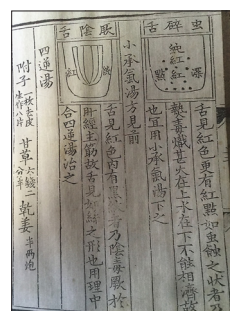 虫碎舌
純紅紅
舌見紅色更有紅點如虫蝕之狀者乃
熱毒熾甚火在上水在下不能相濟故
也宜用小承氣湯下之
小承氣湯方見前
厥陰舌
紅
舌見紅色內有黑紋者乃陰毒厥於
肝經主筋故舌見如絲之形也用理中
合四逆湯治之
四逆湯
附子一枚去皮生作八片 甘草六錢二分半 乾姜半兩炮